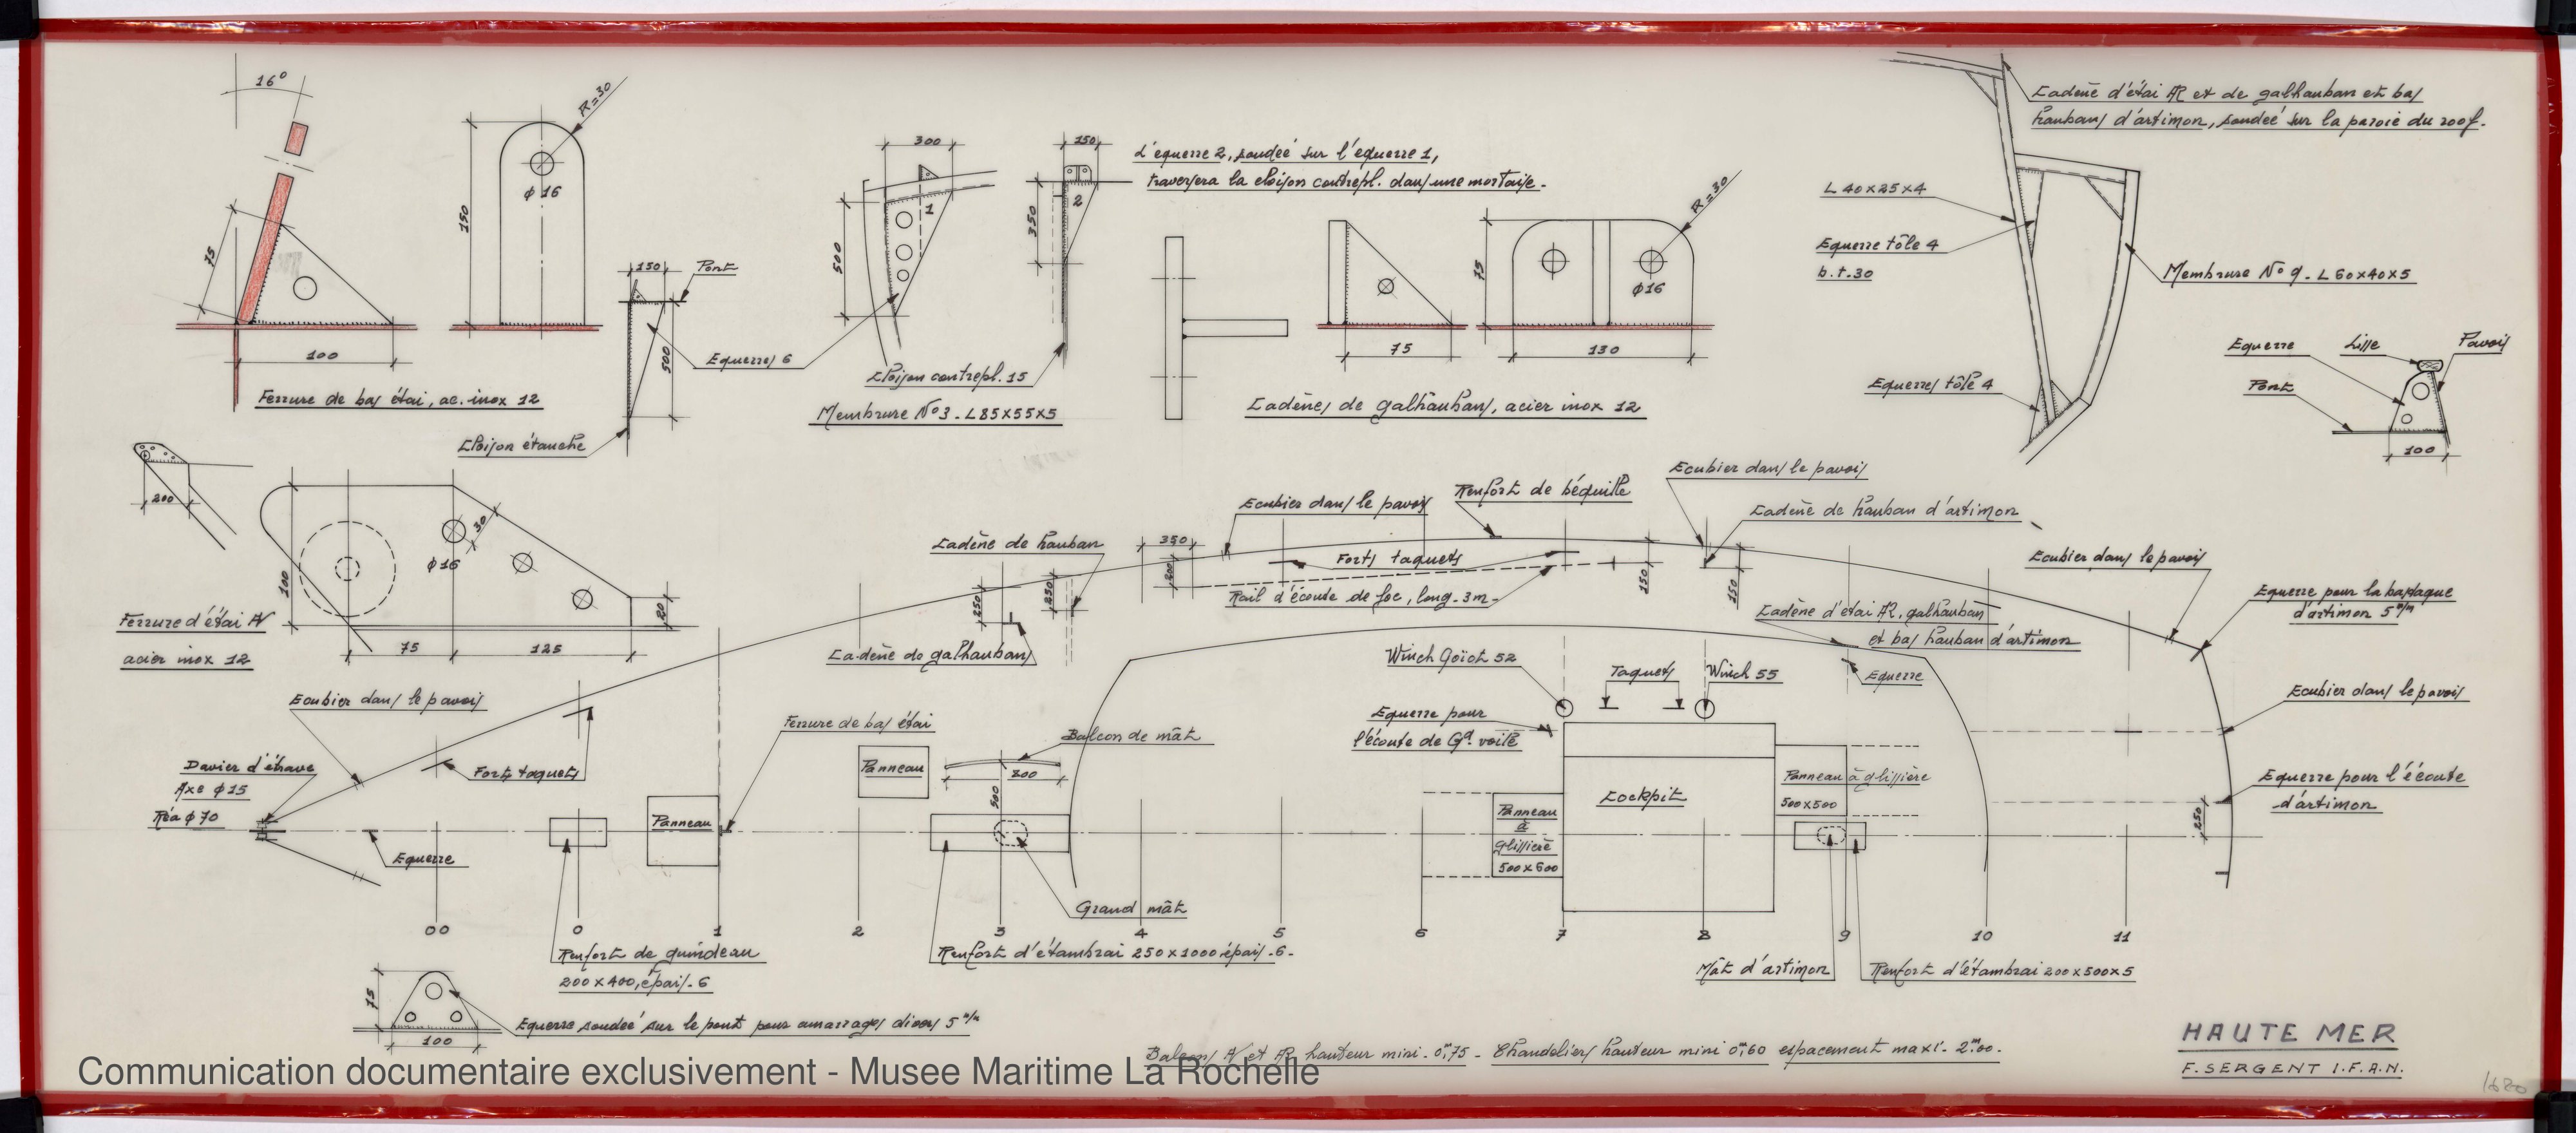 16°
75
100
Ferrure de bas étai, ac. inox 12
R=30
150
ϕ 16
150
Pont
500
Equerres 6
Cloison étanche
300
1
500
Membrure N°3 - L85x55x5
150
2
350
Cloison contrepl. 15
L'equerre 2, soudée sur l'équerre 1,
traversera la cloison contrepl. dans une mortaise.
75
R=30
75
ϕ16
130
Cadènes de galhauban, acier inox 12
Cadène d'étai AR et de galhauban et bas
haubans d'artimon, soudée sur la paroie du roof.
L 40x25x4
Equerre tôle 4
b.t.30
Membrure N° 9 - L 60x40x5
Equerres tôle 4
Equerre
Lisse
Pavois
Pont
100
200
100
ϕ16
30
20
75
125
Ferrure d'étai AV
acier inox 12
Ecubier dans le pavois
Davier d'étrave
Axe ϕ 15
Réa ϕ 70
Forts taquets
Equerre
Ferrure de bas étai
Panneau
Panneau
Balcon de mât
800
500
Grand mât
Cadène de hauban
250
250
Cadène de galhauban
350
200
Ecubier dans le pavois
Renfort de béquille
Forts taquets
Rail d'écoute de foc, long. 3m-
Ecubier dans le pavois
Cadène de hauban d'artimon
150
150
Cadène d'étai AR, galhauban
et bas hauban d'artimon
Equerre
Ecubier dans le pavois
Equerre pour la bastaque
d'artimon 5 m/m
Winch Goïot 52
Taquets
Winch 55
Equerre pour
l'écoute de Gd. voile
Cockpit
Panneau
à
glissière
500x600
Panneau à glissière
500x500
Ecubier dans le pavois
Equerre pour l'écoute
d'artimon
250
00 0 1 2 3 4 5 6 7 8 9 10 11
Renfort de guindeau
200x400, épais. 6
Renfort d'étambrai 250x1000 épais. 6-
Mât d'artimon
Renfort d'étambrai 200x500x5
75
100
Equerre soudée sur le pont pour amarrages divers 5 m/m
Balcons AV et AR hauteur mini. 0m,75 - Chandeliers hauteur mini 0m,60 espacement maxi. 2m,00.
HAUTE MER
F. SERGENT I.F.A.N.
1680
Communication documentaire exclusivement - Musee Maritime La Rochelle